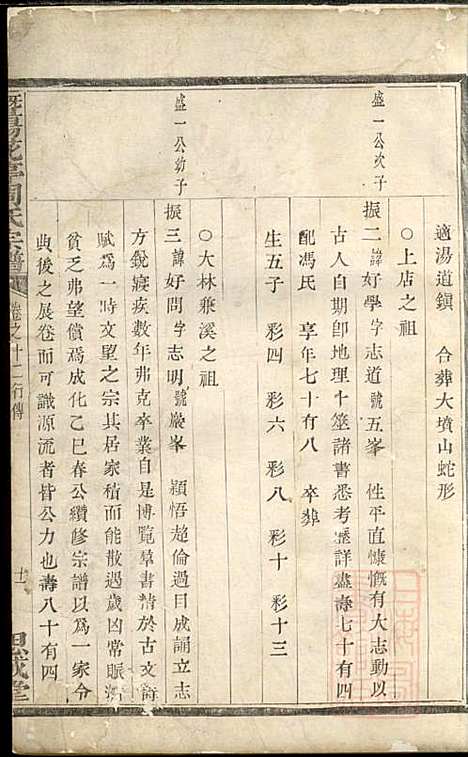 適湯道鎮 合葬大墳山蛇形
○上店之祖
盛一公次子
振二 諱好學字志道號五峯 性平直慷慨有大志動以
古人自期卽地理卜筮諸書悉考歷詳盡壽七十有四
配馮氏 享年七十有八 卒葬
生五子 彩四 彩六 彩八 彩十 彩十三
○大林兼溪之祖
盛一公幼子
振三 諱好問字志明號巖峯 穎悟超倫過目成誦立志
方銳寢疾數年弗克卒業自是博覽羣書精於古文詩
賦爲一時文望之宗其居家積而能散遇歲凶常賑濟
貧乏弗望償焉成化乙巳春公纘修宗譜以爲一家令
典後之展卷而可識源流者皆公力也壽八十有四
暨陽 同氏宗譜 卷之十二行傳 十一 思成堂